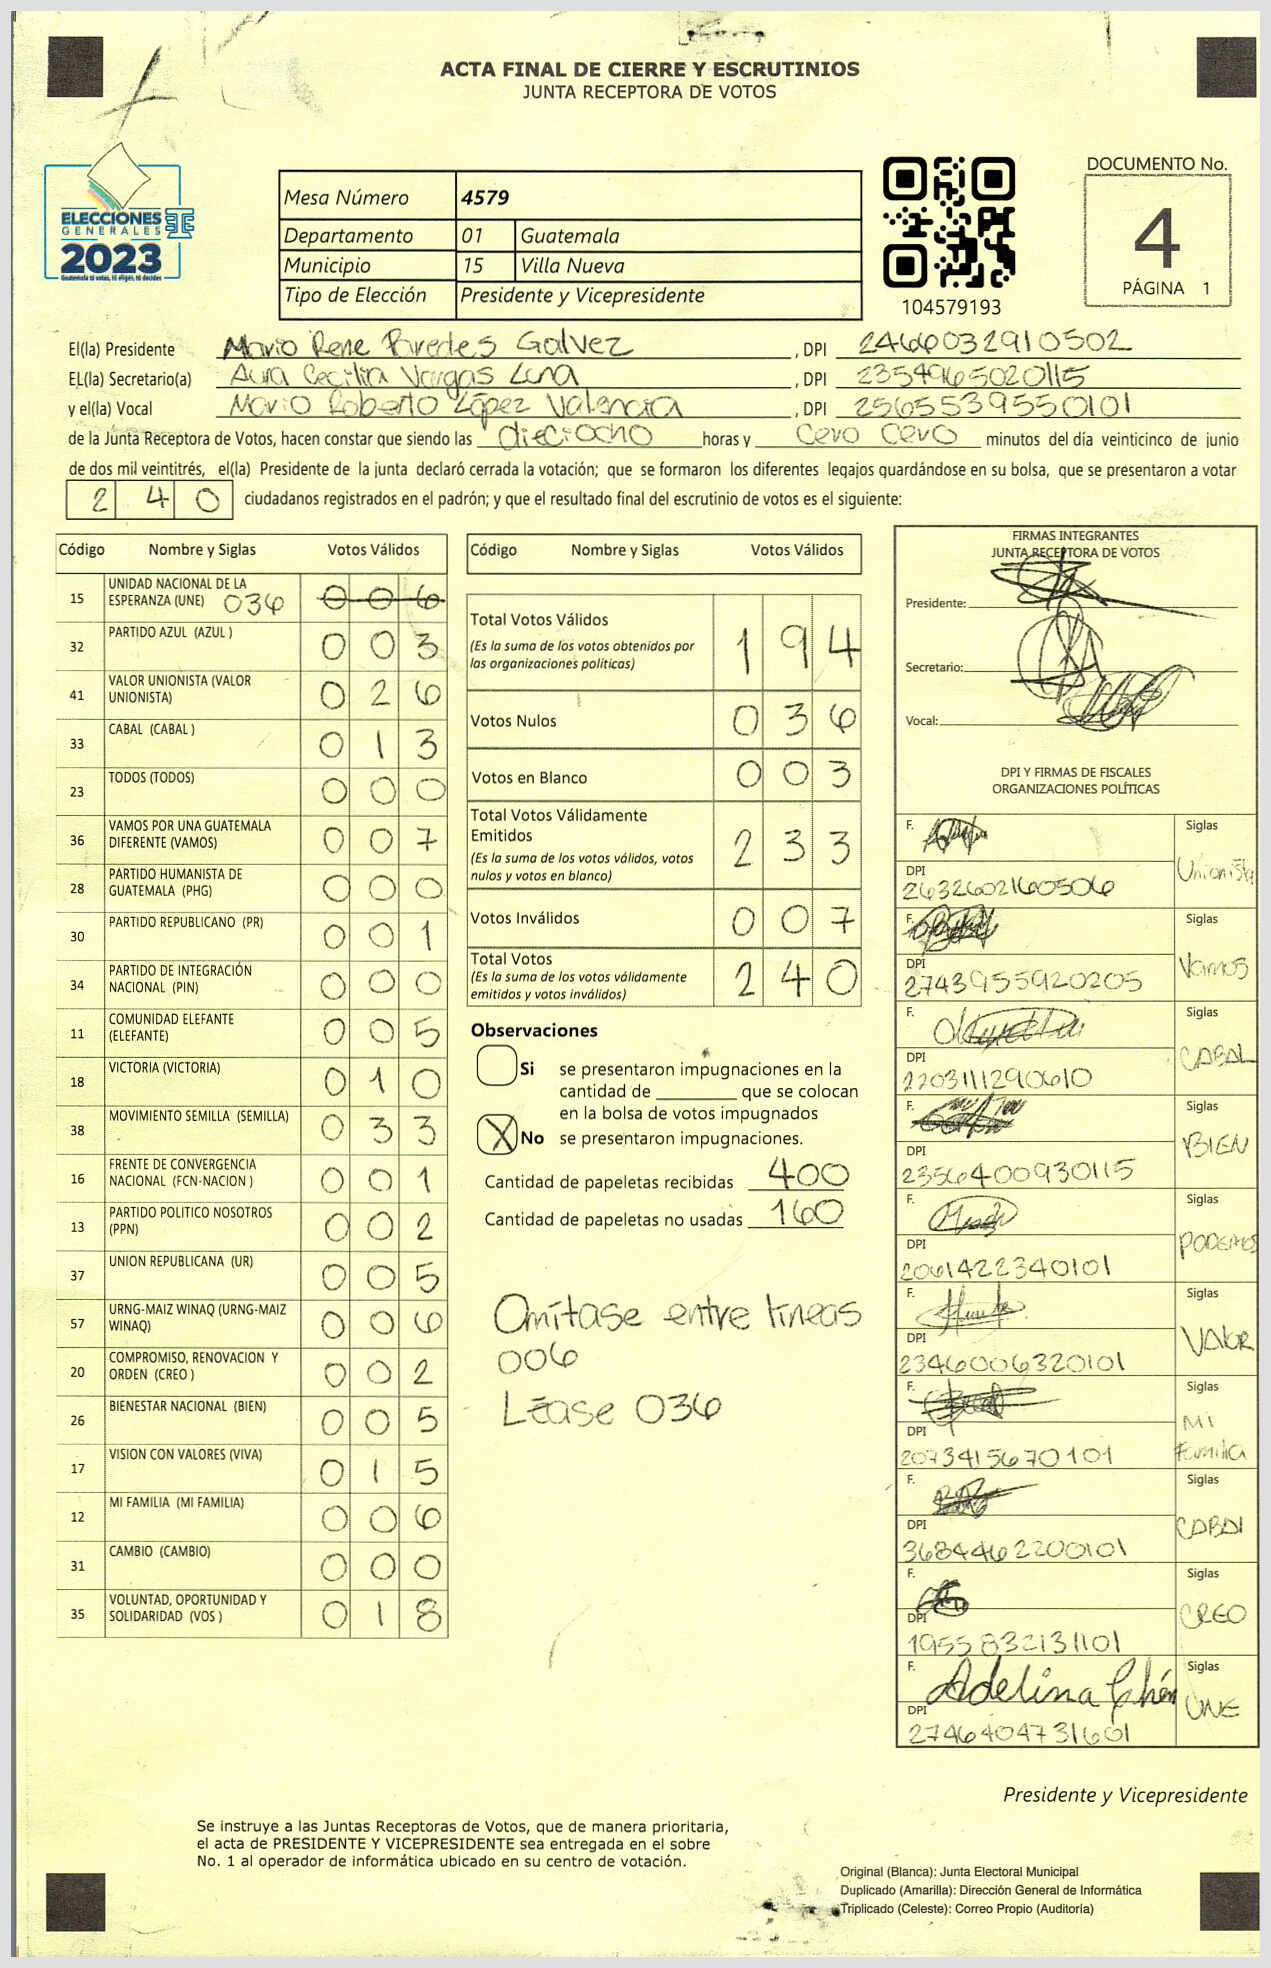 ACTA FINAL DE CIERRE Y ESCRUTINIOS
JUNTA RECEPTORA DE VOTOS
ELECCIONES
GENERALES
2023
Mesa Número 4579
Departamento 01 Guatemala
Municipio 15 Villa Nueva
Tipo de Elección Presidente y Vicepresidente
104579193
DOCUMENTO No.
4
PÁGINA 1
El(la) Presidente Mario Rene Paredes Galvez, DPI 2466032910502
EL(la) Secretario(a) Aura Cecilia Vargas Luna, DPI 2354965020115
y el(la) Vocal Mario Roberto López Valencia, DPI 2565539550101
de la Junta Receptora de Votos, hacen constar que siendo las dieciocho horas y cero cero minutos del día veinticinco de junio
de dos mil veintitrés, el(la) Presidente de la junta declaró cerrada la votación; que se formaron los diferentes legajos quardándose en su bolsa, que se presentaron a votar
2 4 0 ciudadanos registrados en el padrón; y que el resultado final del escrutinio de votos es el siguiente:
Código Nombre y Siglas Votos Válidos
15 UNIDAD NACIONAL DE LA
ESPERANZA (UNE) 036 0 0 6
32 PARTIDO AZUL (AZUL ) 0 0 3
41 VALOR UNIONISTA (VALOR
UNIONISTA) 0 2 6
33 CABAL (CABAL ) 0 1 3
23 TODOS (TODOS) 0 0 0
36 VAMOS POR UNA GUATEMALA
DIFERENTE (VAMOS) 0 0 7
28 PARTIDO HUMANISTA DE
GUATEMALA (PHG) 0 0 0
30 PARTIDO REPUBLICANO (PR) 0 0 1
34 PARTIDO DE INTEGRACIÓN
NACIONAL (PIN) 0 0 0
11 COMUNIDAD ELEFANTE
(ELEFANTE) 0 0 5
18 VICTORIA (VICTORIA) 0 1 0
38 MOVIMIENTO SEMILLA (SEMILLA) 0 3 3
16 FRENTE DE CONVERGENCIA
NACIONAL (FCN-NACION ) 0 0 1
13 PARTIDO POLITICO NOSOTROS
(PPN) 0 0 2
37 UNION REPUBLICANA (UR) 0 0 5
57 URNG-MAIZ WINAQ (URNG-MAIZ
WINAQ) 0 0 6
20 COMPROMISO, RENOVACION Y
ORDEN (CREO ) 0 0 2
26 BIENESTAR NACIONAL (BIEN) 0 0 5
17 VISION CON VALORES (VIVA) 0 1 5
12 MI FAMILIA (MI FAMILIA) 0 0 6
31 CAMBIO (CAMBIO) 0 0 0
35 VOLUNTAD, OPORTUNIDAD Y
SOLIDARIDAD (VOS ) 0 1 8
Código Nombre y Siglas Votos Válidos
Total Votos Válidos
(Es la suma de los votos obtenidos por
las organizaciones políticas) 1 9 4
Votos Nulos 0 3 6
Votos en Blanco 0 0 3
Total Votos Válidamente
Emitidos
(Es la suma de los votos válidos, votos
nulos y votos en blanco) 2 3 3
Votos Inválidos 0 0 7
Total Votos
(Es la suma de los votos válidamente
emitidos y votos inválidos) 2 4 0
Observaciones
Si se presentaron impugnaciones en la
cantidad de que se colocan
en la bolsa de votos impugnados
X No se presentaron impugnaciones.
Cantidad de papeletas recibidas 400
Cantidad de papeletas no usadas 160
Omítase entre lineas
006
Léase 036
FIRMAS INTEGRANTES
JUNTA RECEPTORA DE VOTOS
Presidente:
Secretario:
Vocal:
DPI Y FIRMAS DE FISCALES
ORGANIZACIONES POLÍTICAS
F. Siglas
DPI Unionista
2632602160506
F. Siglas
DPI Vamos
2743955920205
F. Siglas
DPI CABAL
2203111290610
F. Siglas
DPI BIEN
2356400930115
F. Siglas
DPI PODEMOS
2061422340101
F. Siglas
DPI VALOR
2346006320101
F. Siglas
DPI Mi Familia
2073415670101
F. Siglas
DPI
3684462200101
F. Siglas
DPI CREO
1955832131101
F. Adelina Siglas
DPI UNE
2746404731601
Presidente y Vicepresidente
Se instruye a las Juntas Receptoras de Votos, que de manera prioritaria,
el acta de PRESIDENTE Y VICEPRESIDENTE sea entregada en el sobre
No. 1 al operador de informática ubicado en su centro de votación.
Original (Blanca): Junta Electoral Municipal
Duplicado (Amarilla): Dirección General de Informática
Triplicado (Celeste): Correo Propio (Auditoría)